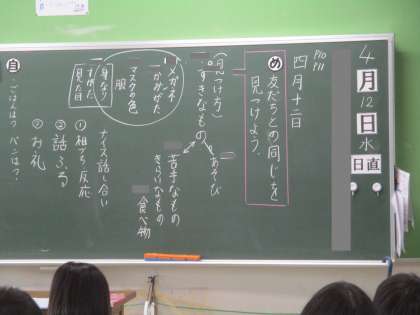 4
月
12
日
水
日直
P10
P11
四月十二日
め 友だちとの同じを
見つけよう。
(見つけ方)
すきなもの
あそび
苦手なもの
きらいなもの
食べ物
メガネ
かみがた
マスクの色
服
身なり
すがた
見た目
ナイス話し合い
①相づち、反応
②話ふる
③お礼
自
・ごはんは?パンは?